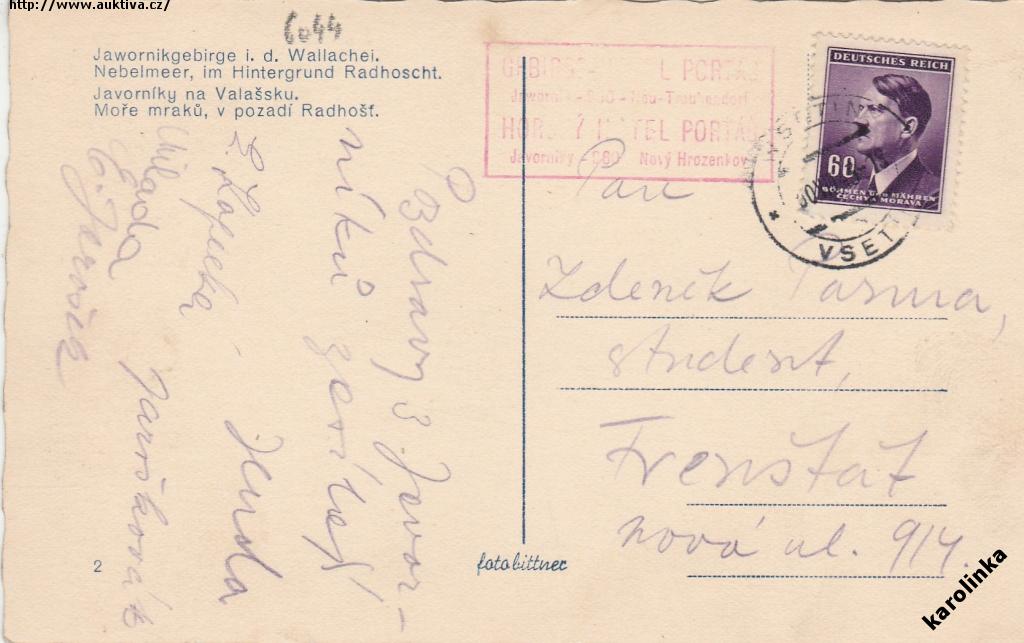 http://www.auktiva.cz/
6044
Jawornikgebirge i. d. Wallachei.
Nebelmeer, im Hintergrund Radhoscht.
Javorníky na Valašsku.
Moře mraků, v pozadí Radhošť.
L PORTÁŠ
HOR HOTEL PORTÁŠ
Javorníky - Nový Hrozenkov
DEUTSCHES REICH
60
BÖHMEN UND MÄHREN
ČECHY A MORAVA
VSET
Pozdravy z Javor-
níků zasílají
Jenda
Milada Jarošková
Pan
Zdeněk Parma,
student,
Frenštát
nová ul. 914.
2
fotobittner
karolinka